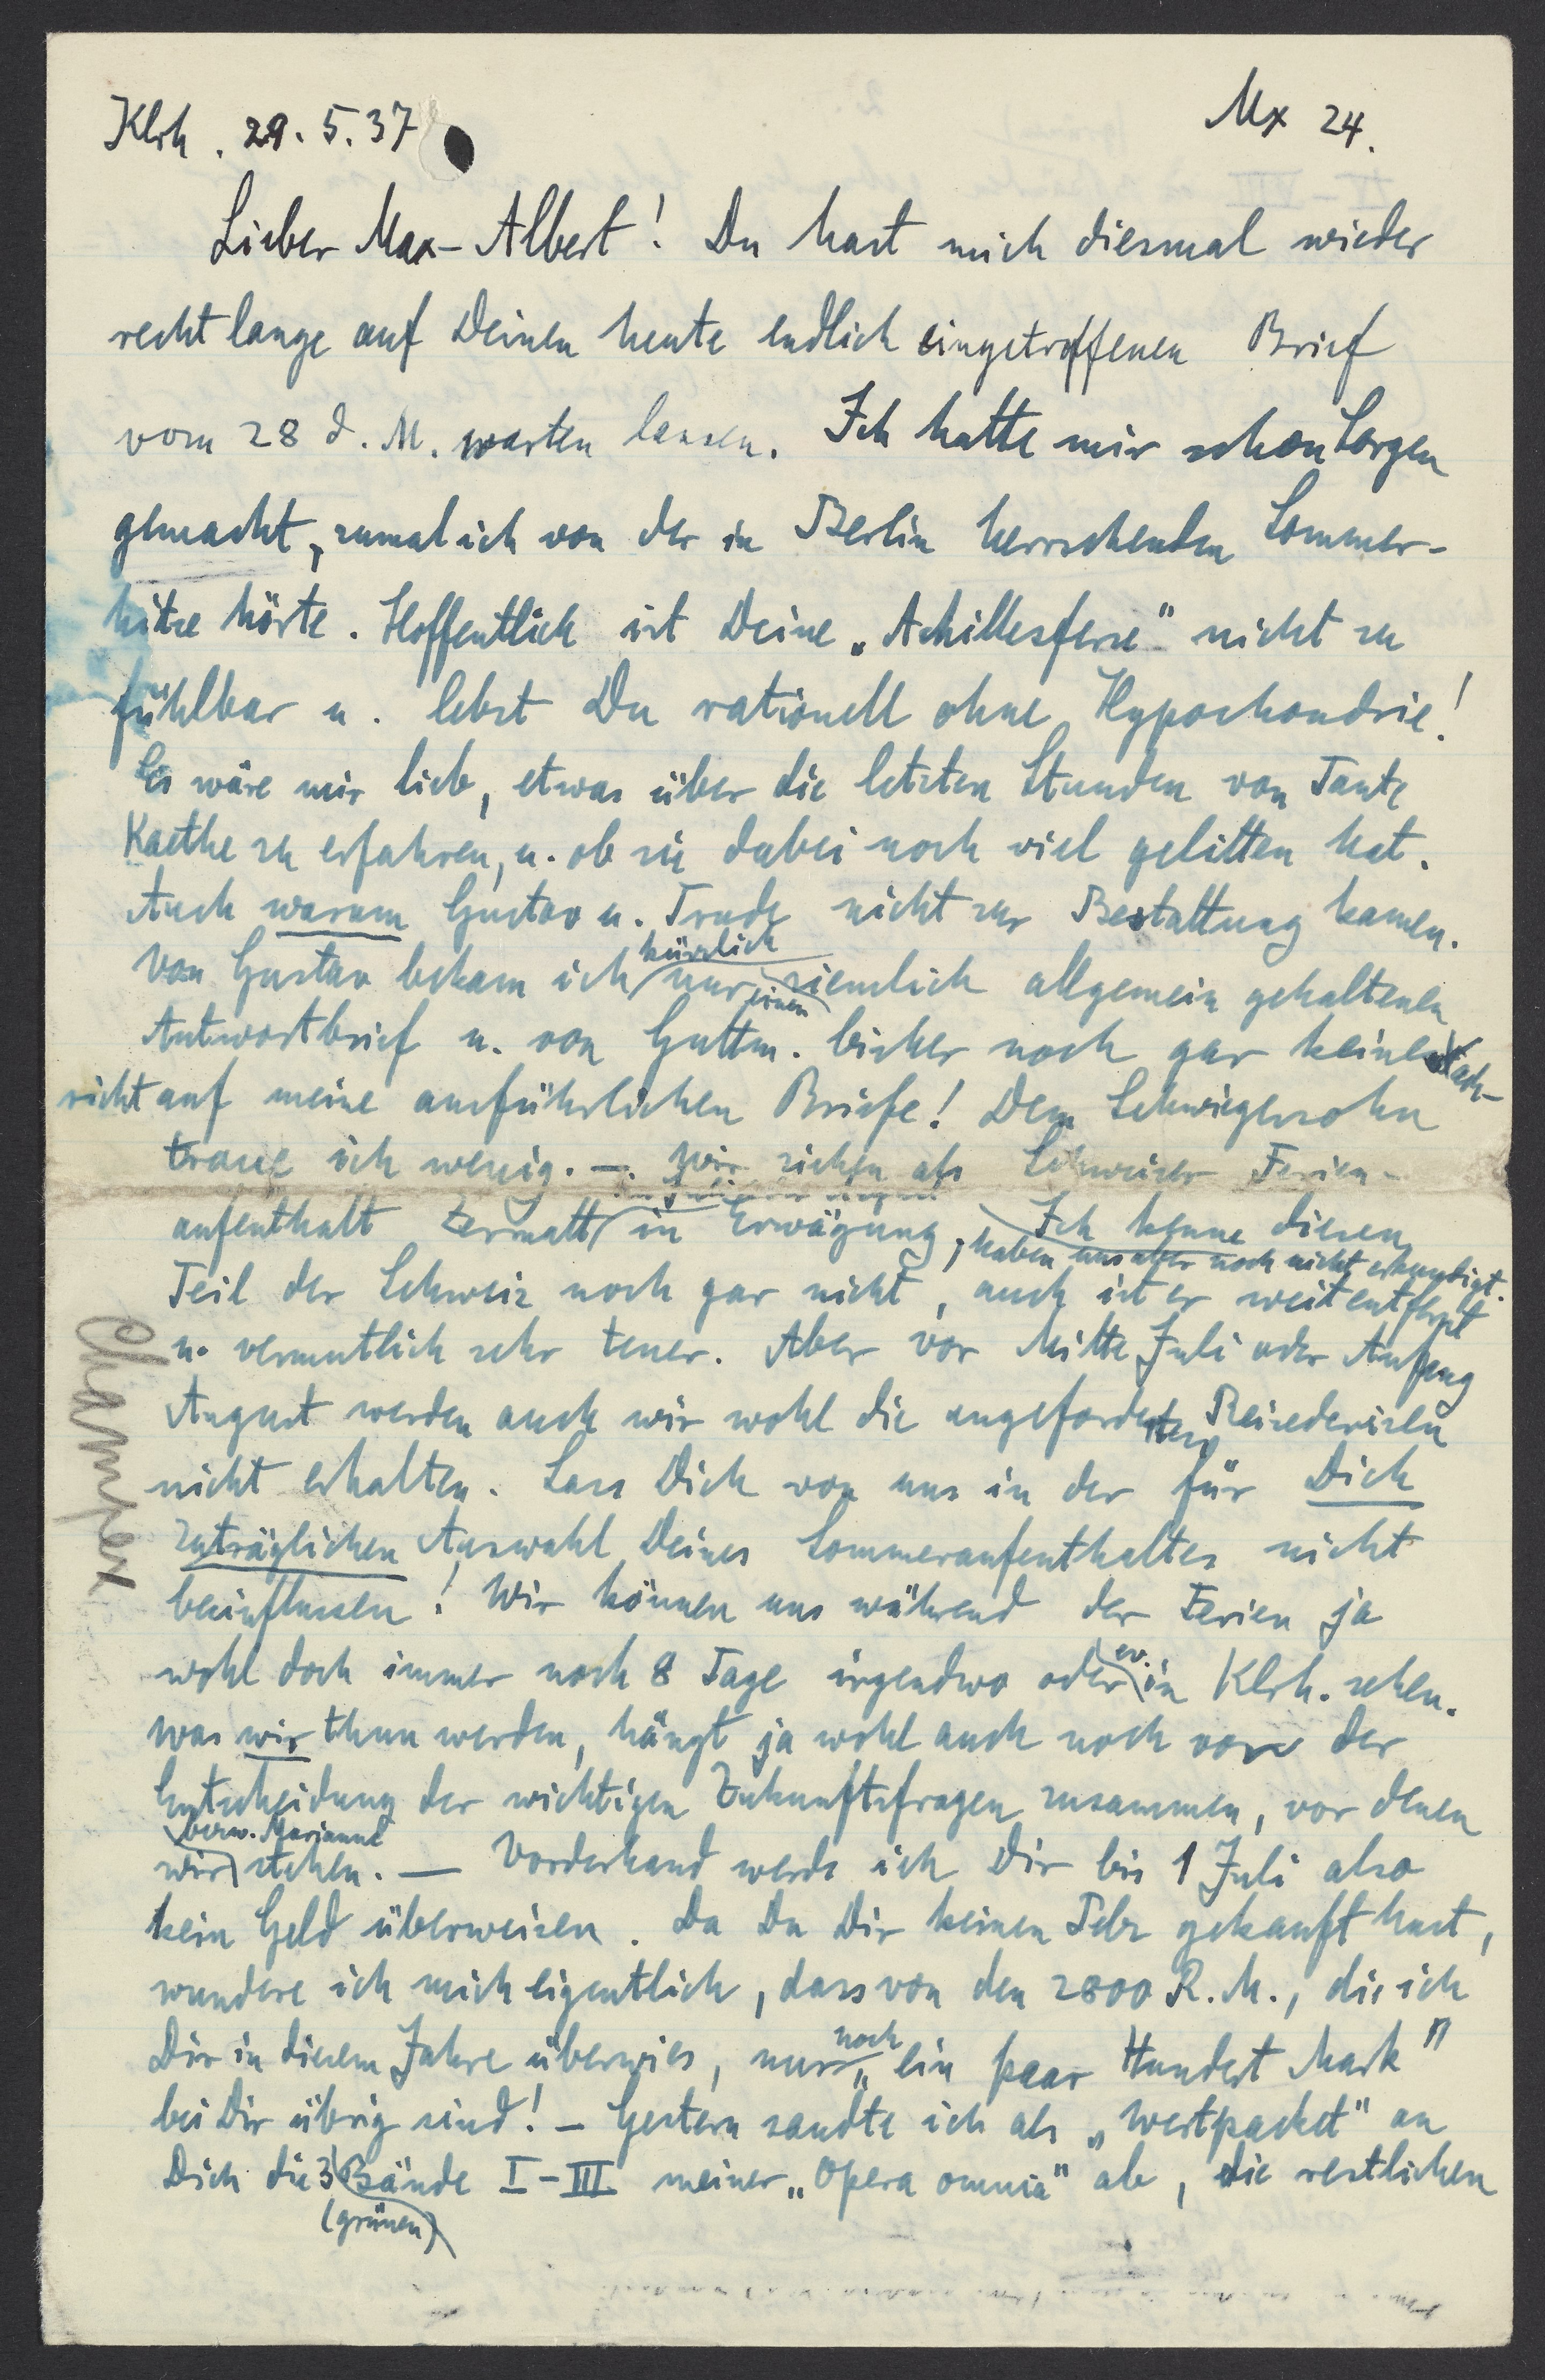 Klrh. 29.5.37
Mx 24.
Lieber Max-Albert! Du hast mich diesmal wieder
recht lange auf Deinen heute endlich eingetroffenen Brief
vom 28 d. M. warten lassen. Ich hatte mir schon Sorgen
gemacht, zumal ich von der in Berlin herrschenden Sommer-
hitze hörte. Hoffentlich ist Deine „Achillesferse" nicht zu
fühlbar u. lebst Du rationell ohne Hypochondrie!
Es wäre mir lieb, etwas über die letzten Stunden von Tante
Kaethe zu erfahren, u. ob sie dabei noch viel gelitten hat.
Auch warum Gustav u. Trude nicht zur Bestattung kamen.
Von Gustav bekam ich kürzlich nur einen ziemlich allgemein gehaltenen
Antwortbrief u. von Guttm. bisher noch gar keine Nach-
richt auf meine ausführlichen Briefe! Dem Schwiegersohn
traue ich wenig. — Wir ziehen als Schweizer Ferien-
aufenthalt Zermatt in Erwägung, haben uns aber noch nicht erkundigt. Ich kenne diesen
Teil der Schweiz noch gar nicht, auch ist er weit entfernt
u. vermutlich sehr teuer. Aber vor Mitte Juli oder Anfang
August werden auch wir wohl die angeforderten Reisedevisen
nicht erhalten. Lass Dich von uns in der für Dich
zuträglichen Auswahl Deines Sommeraufenthaltes nicht
beeinflussen! Wir können uns während der Ferien ja
wohl doch immer noch 8 Tage irgendwo oder ev. in Klrh. sehen.
Was wir thun werden, hängt ja wohl auch noch von der
Entscheidung der wichtigen Zukunftsfragen zusammen, vor denen
wir bezw. Marianne stehen. — Vorderhand werde ich Dir bis 1 Juli also
kein Geld überweisen. Da Du Dir keinen Pelz gekauft hast,
wundere ich mich eigentlich, dass von den 2800 R.M., die ich
Dir in diesem Jahre überwies, nur noch „ein paar Hundert Mark"
bei Dir übrig sind! — Gestern sandte ich als „Wertpacket" an
Dich die 3 (grünen) Bände I-III meiner „Opera omnia" ab, die restlichen
Champex